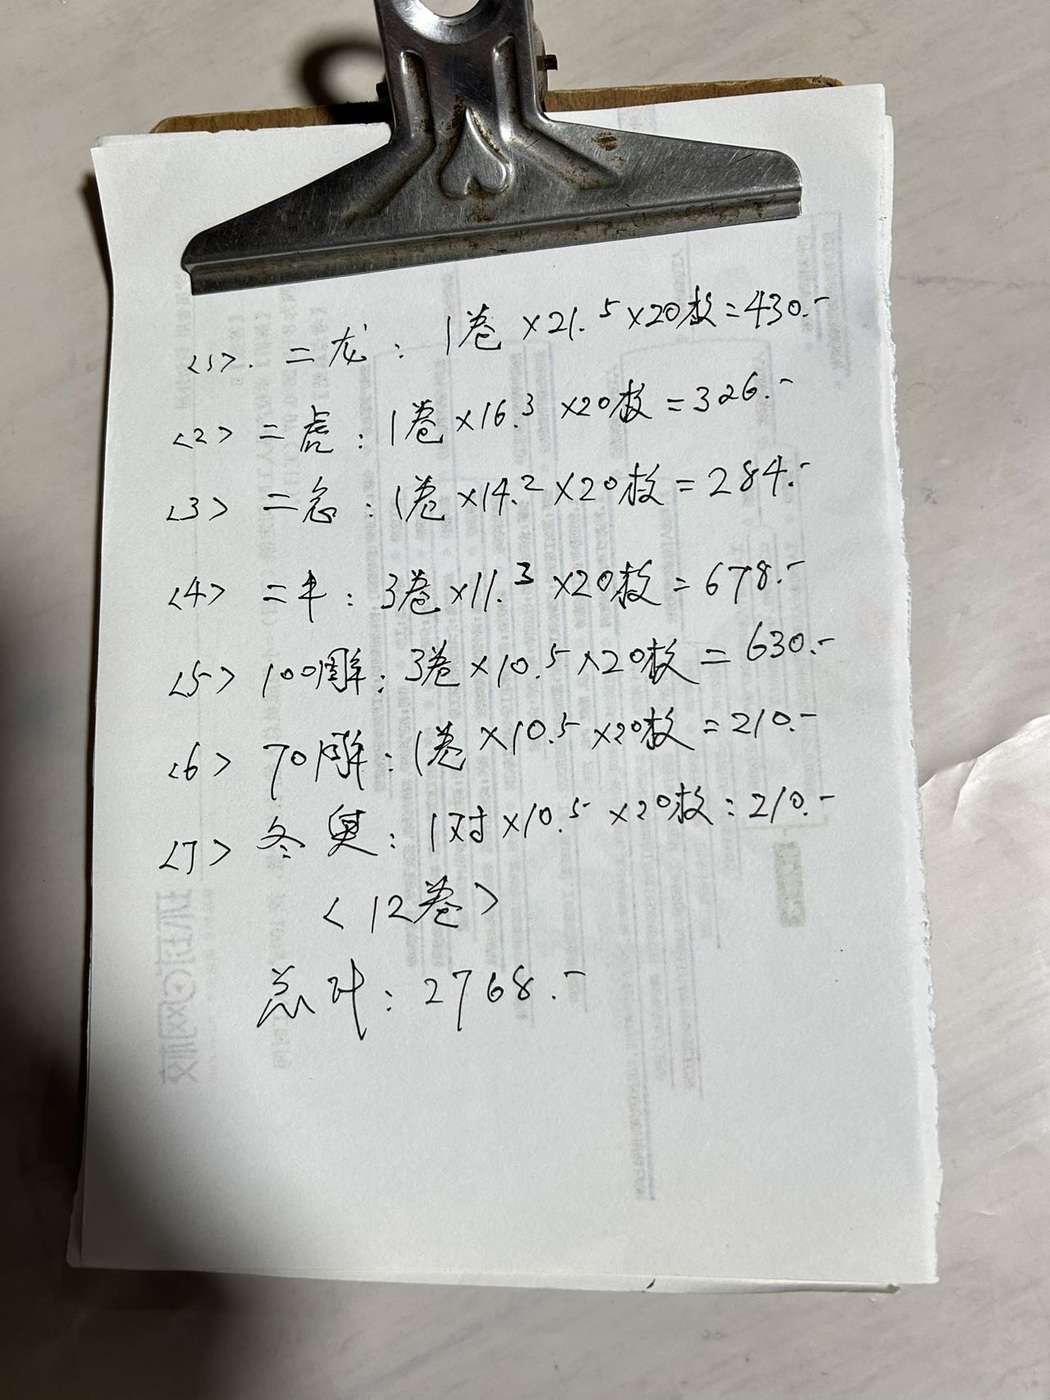 <1>. 二龙: 1卷×21.5×20枚=430.-
<2> 二虎: 1卷×16.3×20枚=326.-
<3> 二兔: 1卷×14.2×20枚=284.-
<4> 二牛: 3卷×11.3×20枚=678.-
<5> 100周年: 3卷×10.5×20枚=630.-
<6> 70周年: 1卷×10.5×20枚=210.-
<7> 冬奥: 1对×10.5×20枚=210.-
<12卷>
总计: 2768.-